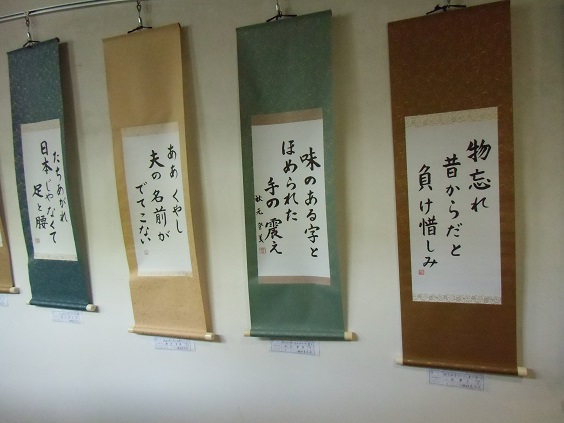 物忘れ
昔からだと
負け惜しみ
味のある字と
ほめられた
手の震え
ああ くやし
夫の名前が
でてこない
たちあがれ
日本じゃなくて
足と腰